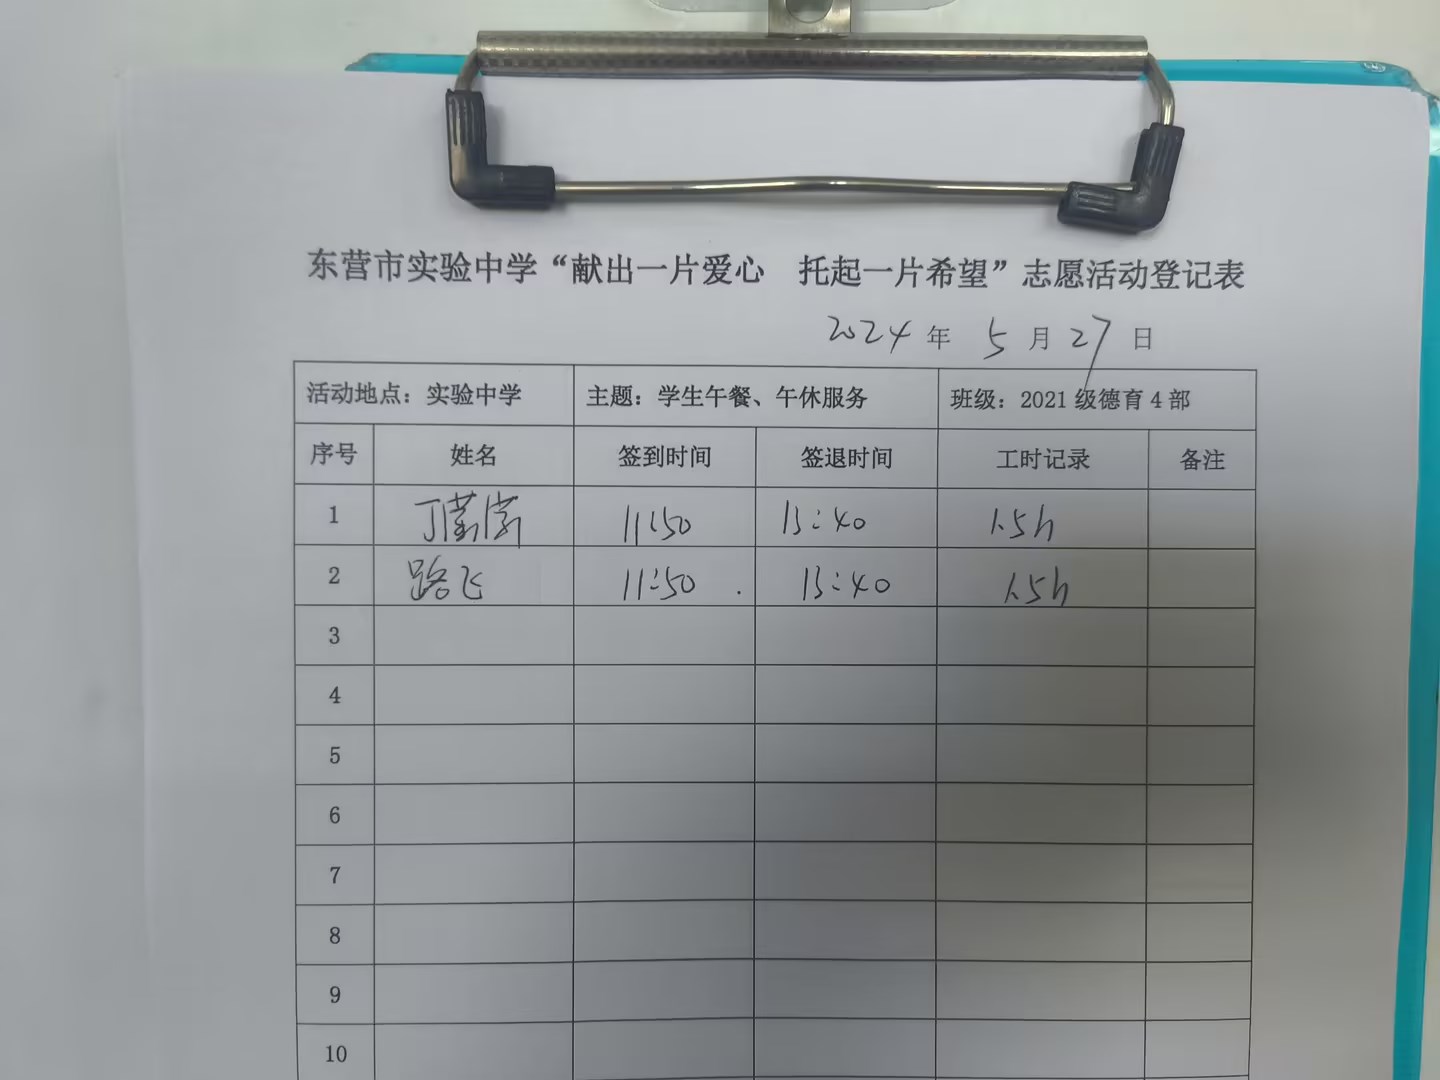 东营市实验中学“献出一片爱心 托起一片希望”志愿活动登记表
2024 年 5 月 27 日
活动地点：实验中学 主题：学生午餐、午休服务 班级：2021 级德育 4 部
序号 姓名 签到时间 签退时间 工时记录 备注
1 丁 11:50 13:40 1.5h
2 路飞 11:50 13:40 1.5h
3
4
5
6
7
8
9
10